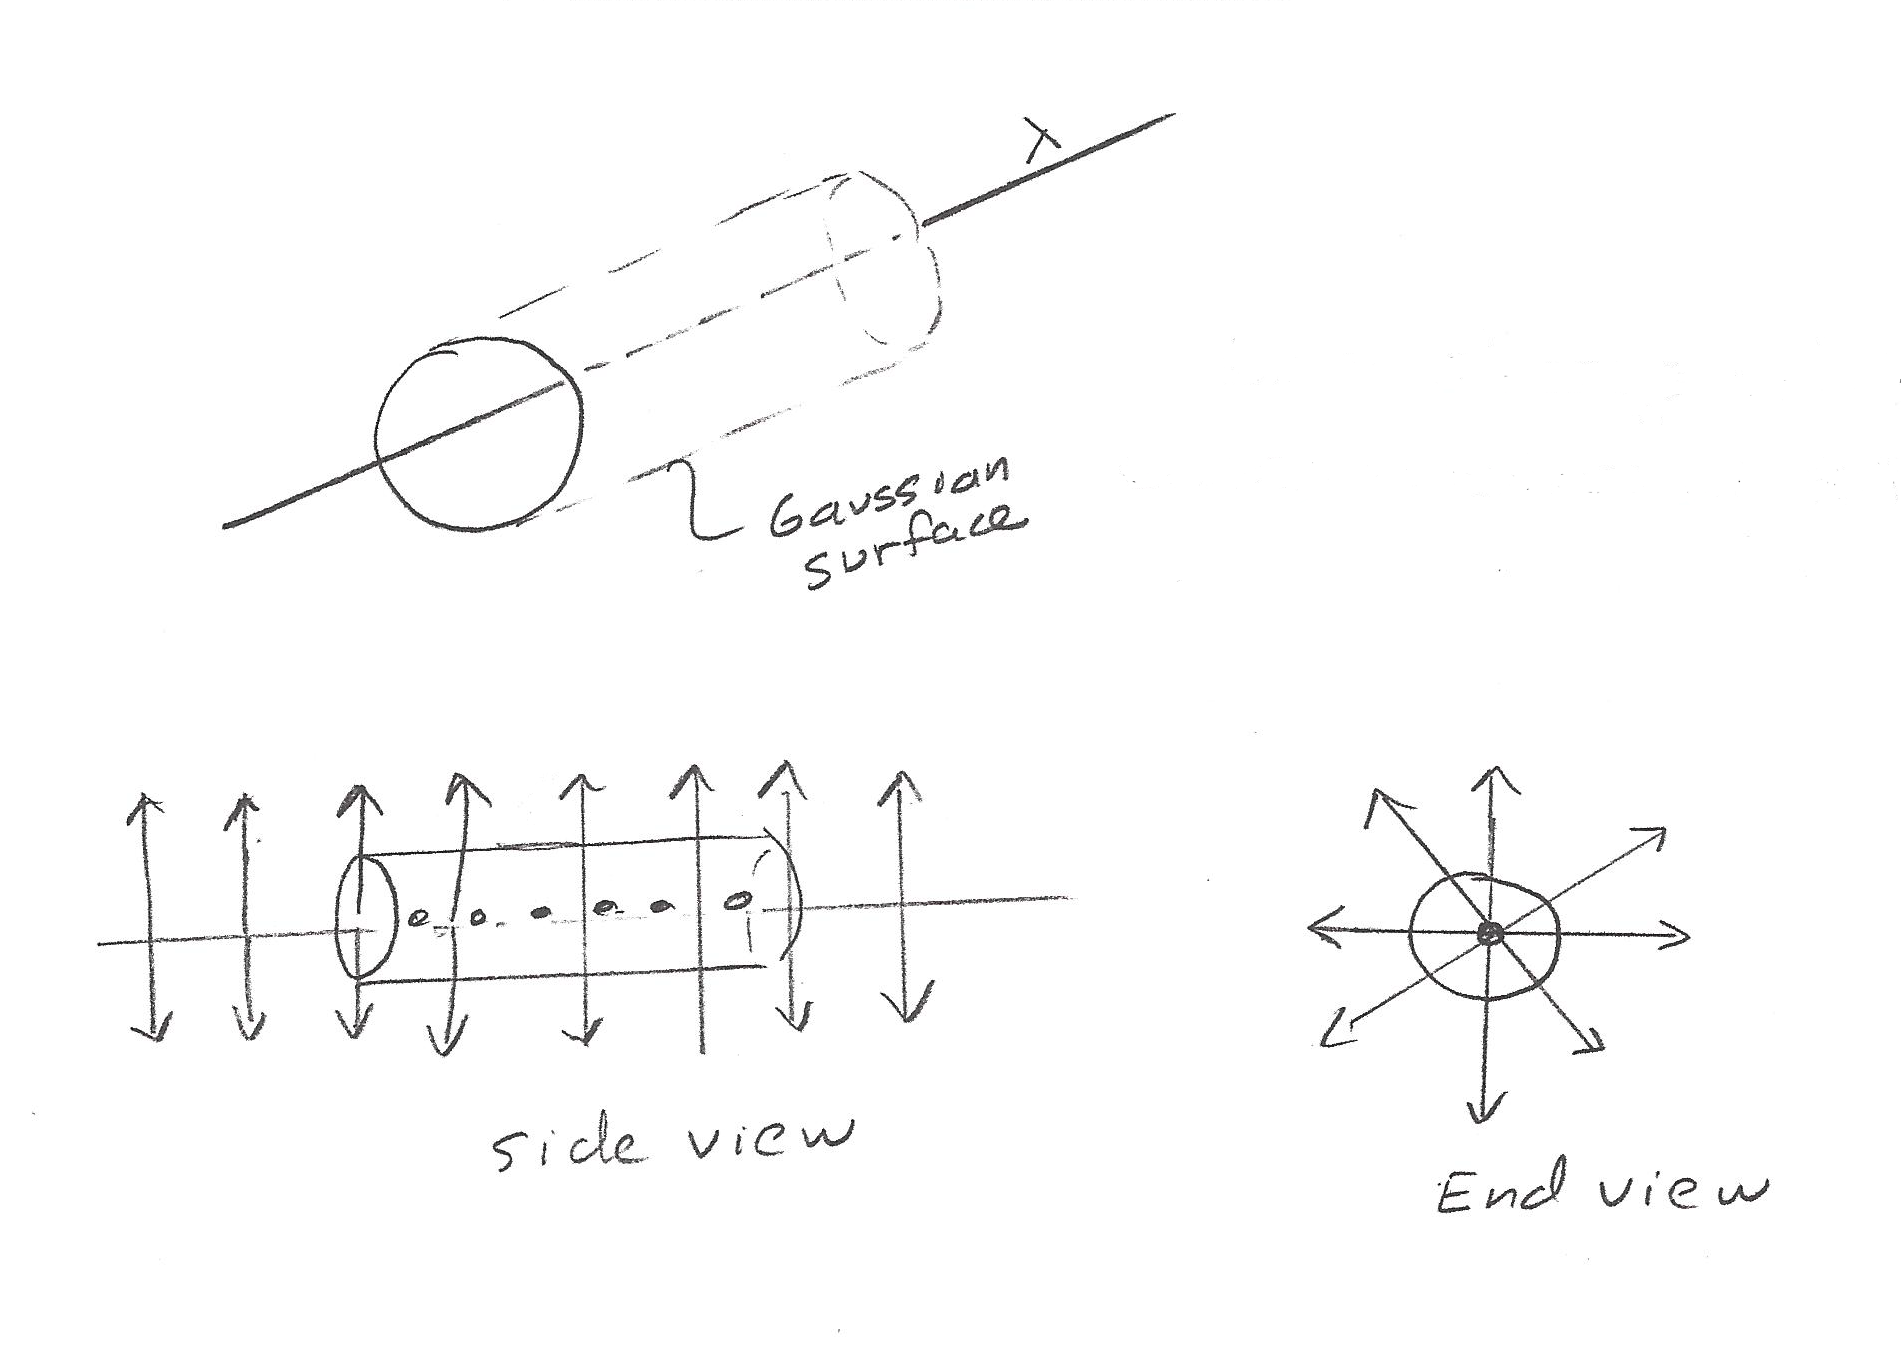 λ
Gaussian
surface
side view
End view